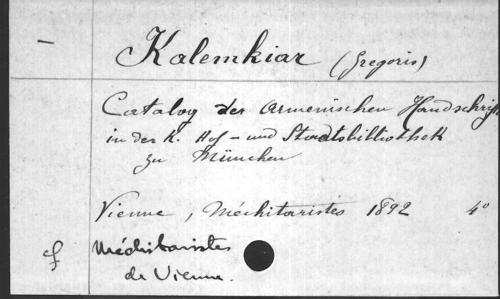 —
Kalemkiar (Gregoris)
Catalog der Armenischen Handschrift
in der K. Hof - und Staatsbibliothek
zu München
Vienne, Méchitaristes 1892 4°
cf Méchitaristes
de Vienne.